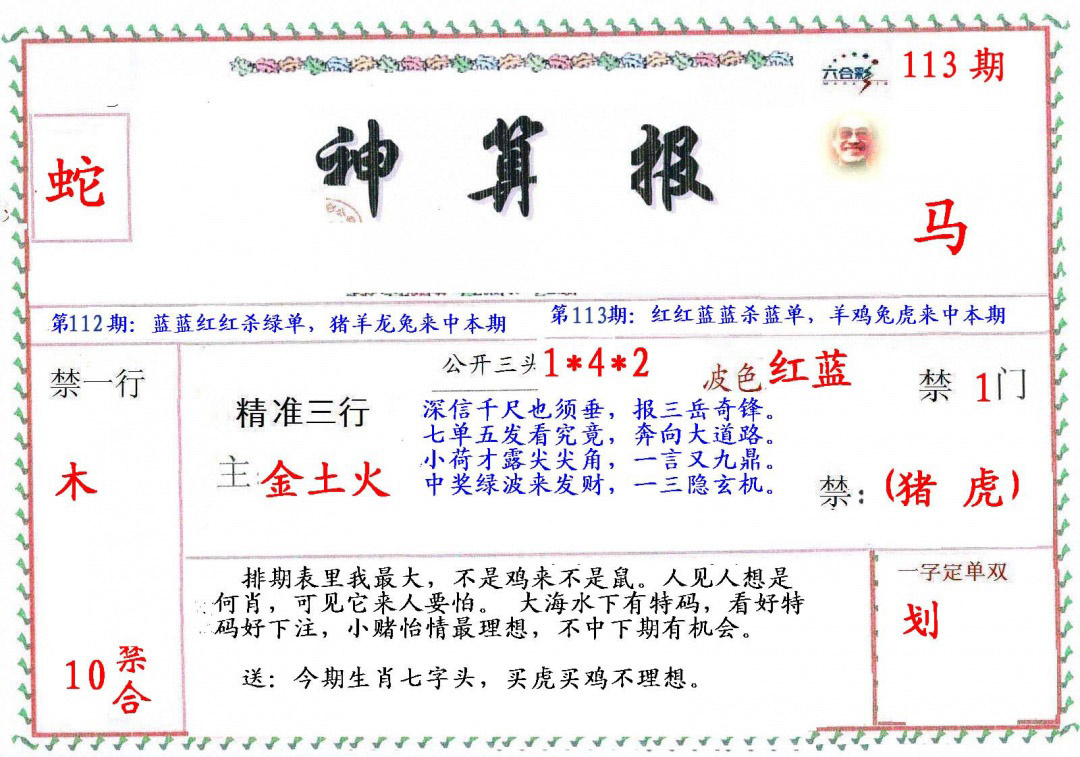 六合彩
113期
神算报
蛇
马
第112期：蓝蓝红红杀绿单，猪羊龙兔来中本期
第113期：红红蓝蓝杀蓝单，羊鸡兔虎来中本期
禁一行
木
10禁合
公开三头1*4*2
波色红蓝
禁1门
精准三行
主:金土火
深信千尺也须垂，报三岳奇锋。
七单五发看究竟，奔向大道路。
小荷才露尖尖角，一言又九鼎。
中奖绿波来发财，一三隐玄机。
禁：(猪 虎)
排期表里我最大，不是鸡来不是鼠。人见人想是
何肖，可见它来人要怕。 大海水下有特码，看好特
码好下注，小赌怡情最理想，不中下期有机会。
送：今期生肖七字头，买虎买鸡不理想。
一字定单双
划